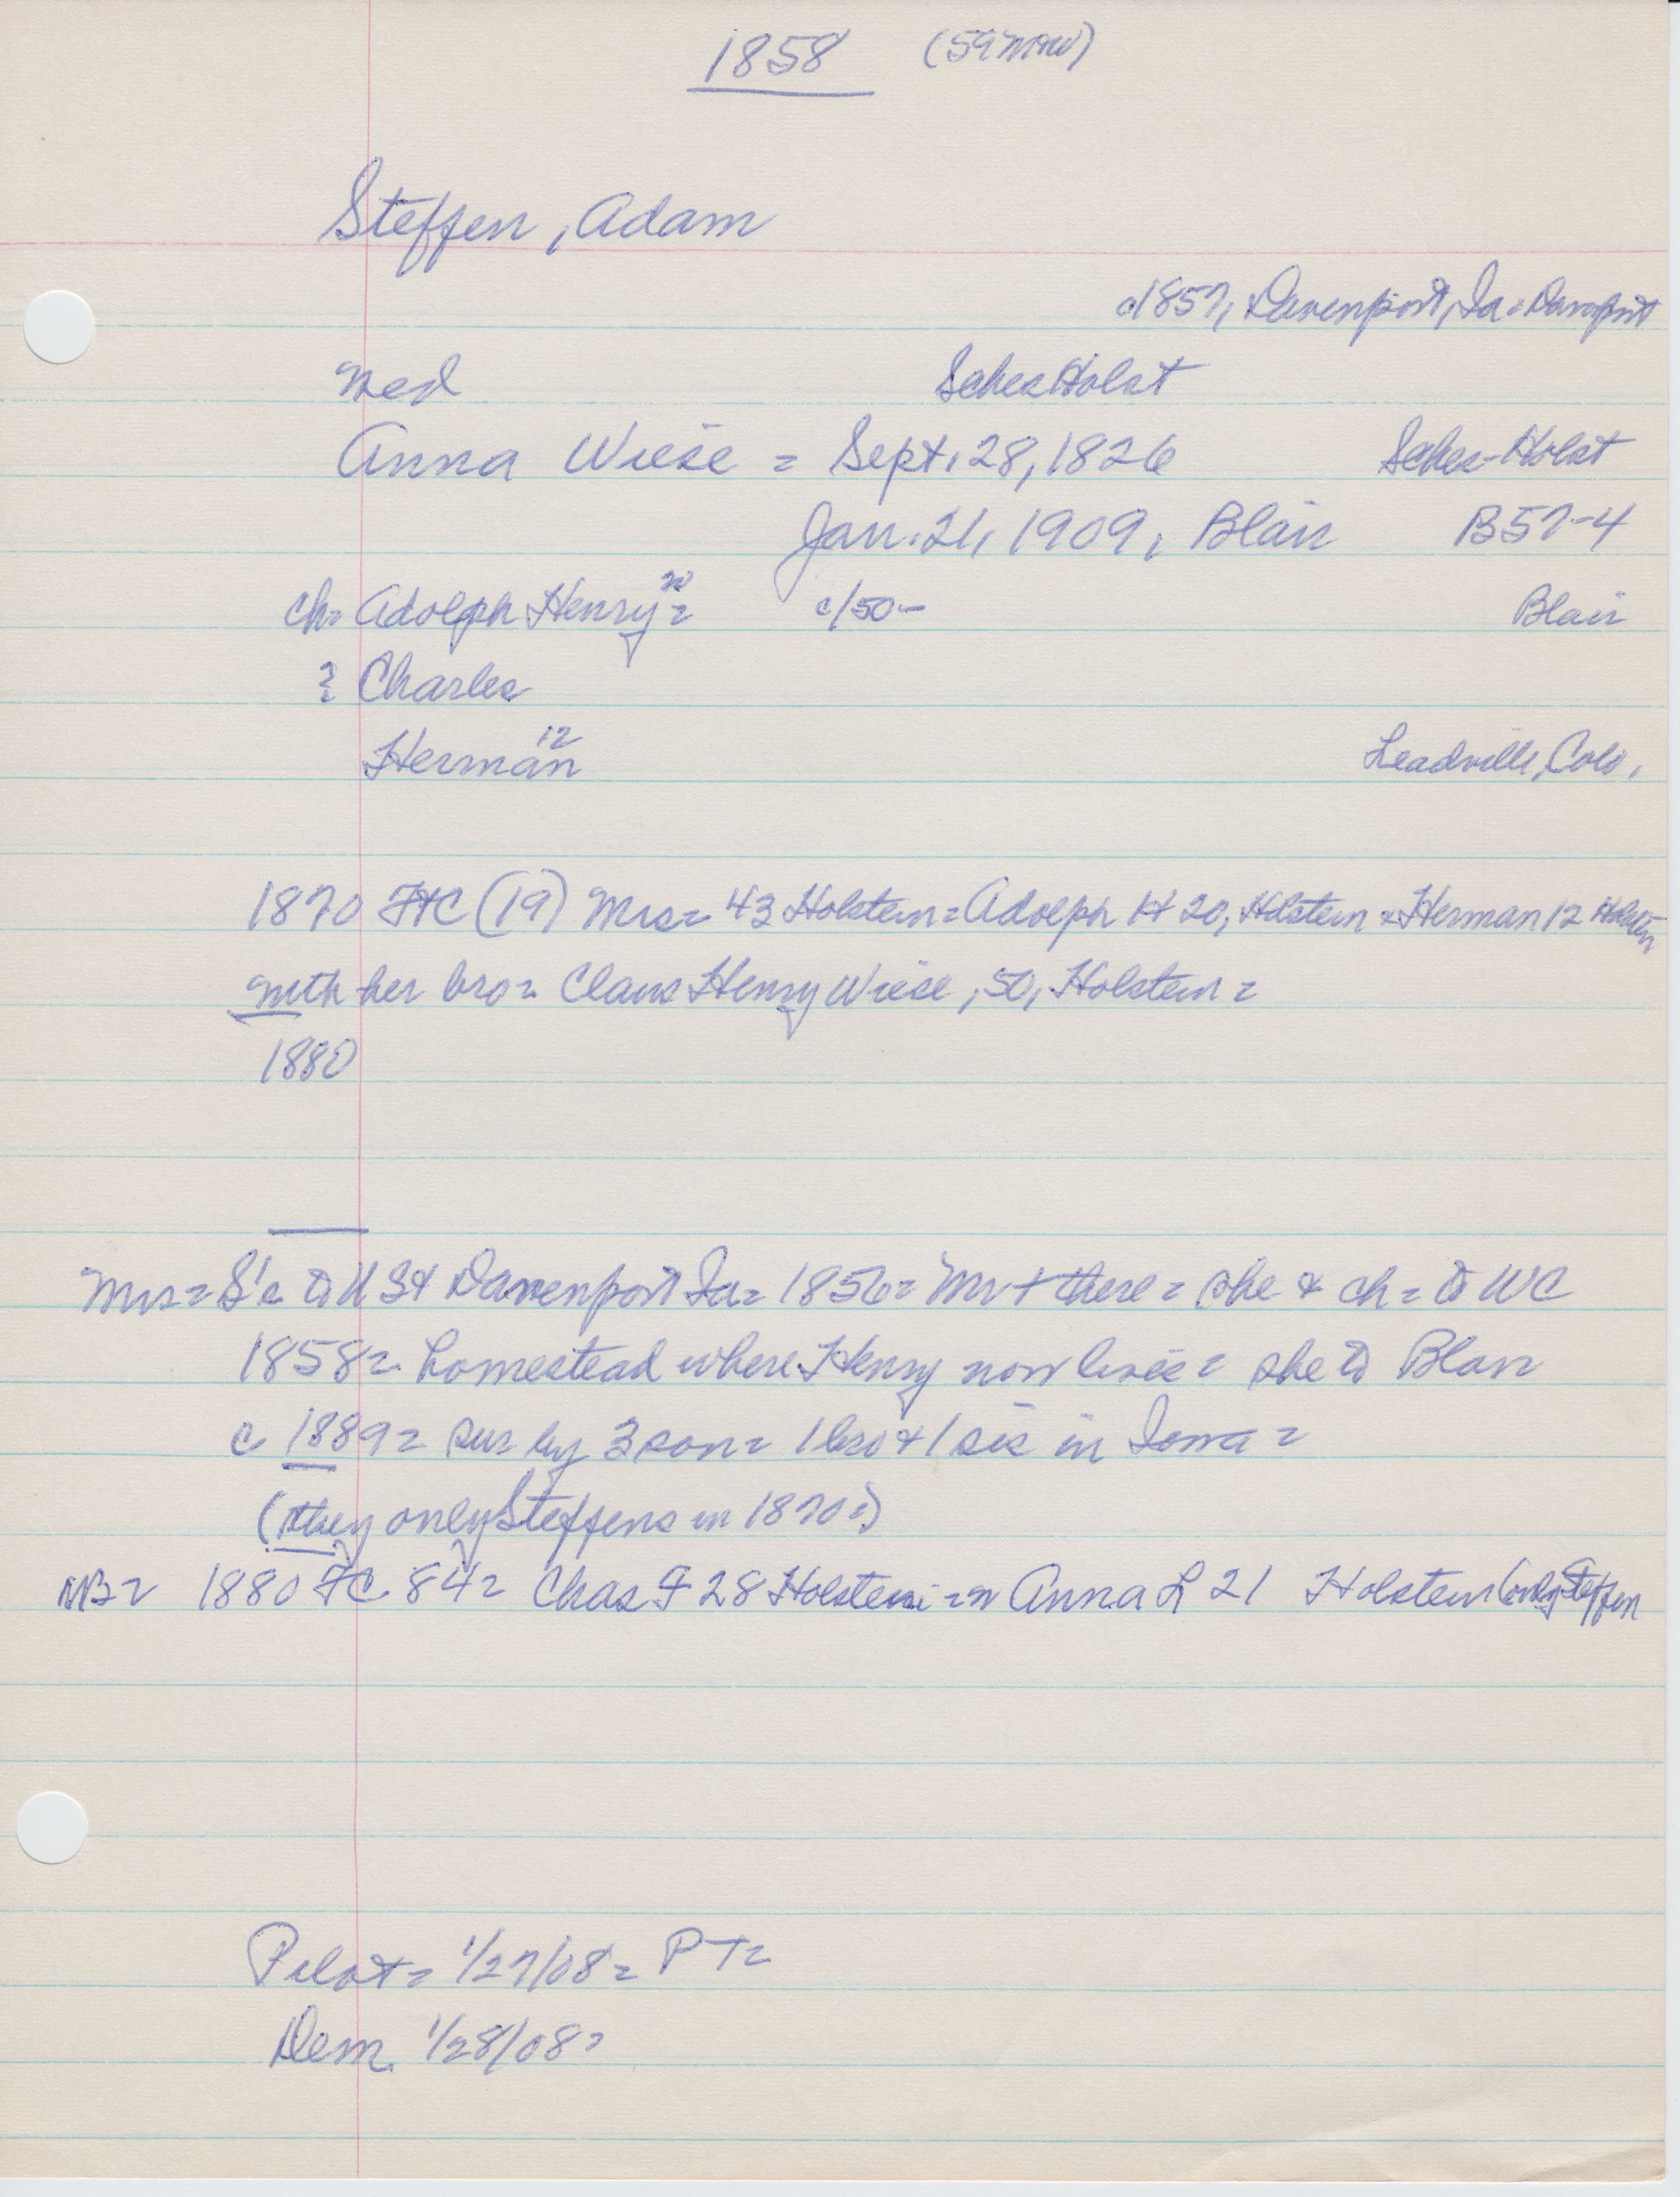 1858 (59 now)
Steffen, Adam
c1857, Davenport, Ia = Davnprt
med Schles Holst
Anna Wiese = Sept. 28, 1826 Schles-Holst
Jan. 21, 1909, Blair B57-4
ch= Adolph Henry 20 = c/50- Blair
? Charles
Herman 12 Leadville, Colo.
1870 FtC (19) Mrs= 43 Holstein = Adolph H 20, Holstein & Herman 12 Holstein
with her bro = Claus Henry Wiese, 50, Holstein =
1880
Mrs = S's to U S & Davenport Ia = 1856 = Mr + there = she & ch = to WC
1858 = homestead where Henry now lives = she to Blair
c 1889 = sur by 3 son = 1 bro & 1 sis in Iowa =
(they only Steffens in 1870 =)
NB = 1880 FC 84 = Chas F 28 Holstein = Anna L 21 Holstein (only Steffen
Pilot = 1/27/08 = P T =
Dem. 1/28/08 =